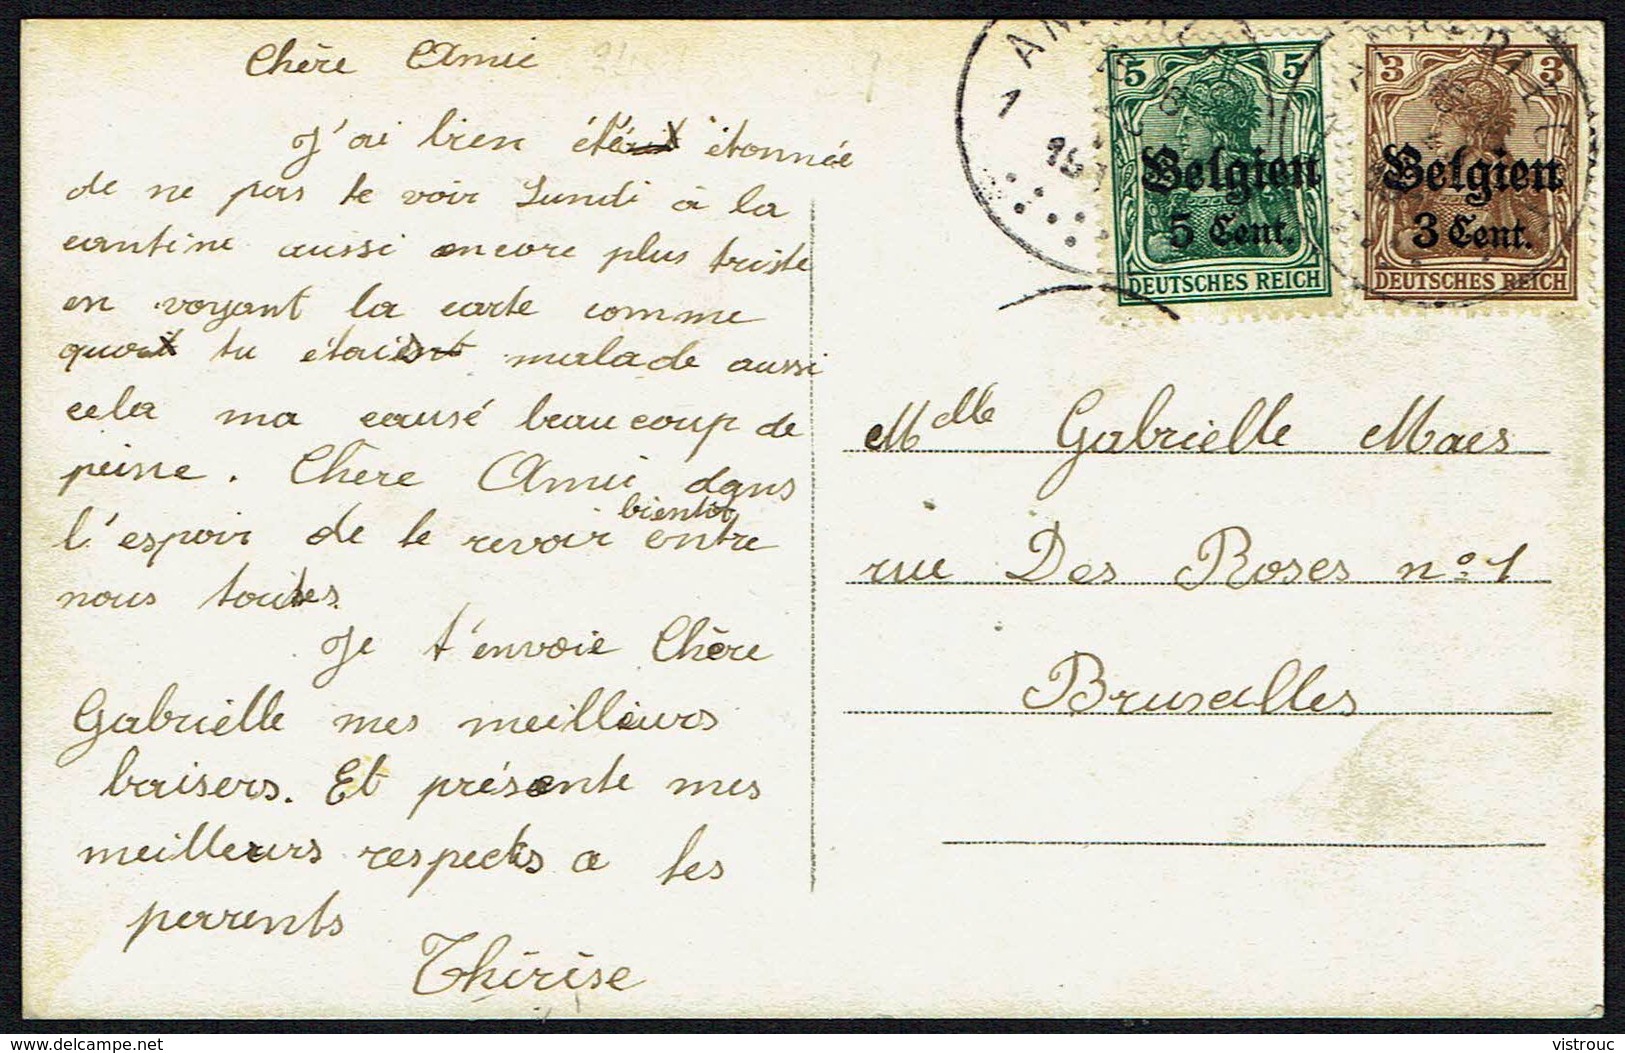 Chère Amie
J'ai bien été étonnée
de ne pas te voir Lundi à la
cantine aussi encore plus triste
en voyant la carte comme
quoi tu étais malade aussi
cela ma causé beaucoup de
peine. Chere Amie dans
l'espoir de te revoir bientôt entre
nous toutes.
Je t'envoie Chère
Gabrielle mes meilleurs
baisers. Et présente mes
meilleurs respects a tes
parrents
Thérèse
5 5
Belgien
5 Cent.
DEUTSCHES REICH
3 3
Belgien
3 Cent.
DEUTSCHES REICH
1
Mdlle Gabrielle Maes
rue Des Roses no 1
Bruxelles
delcampe.net
vistrouc